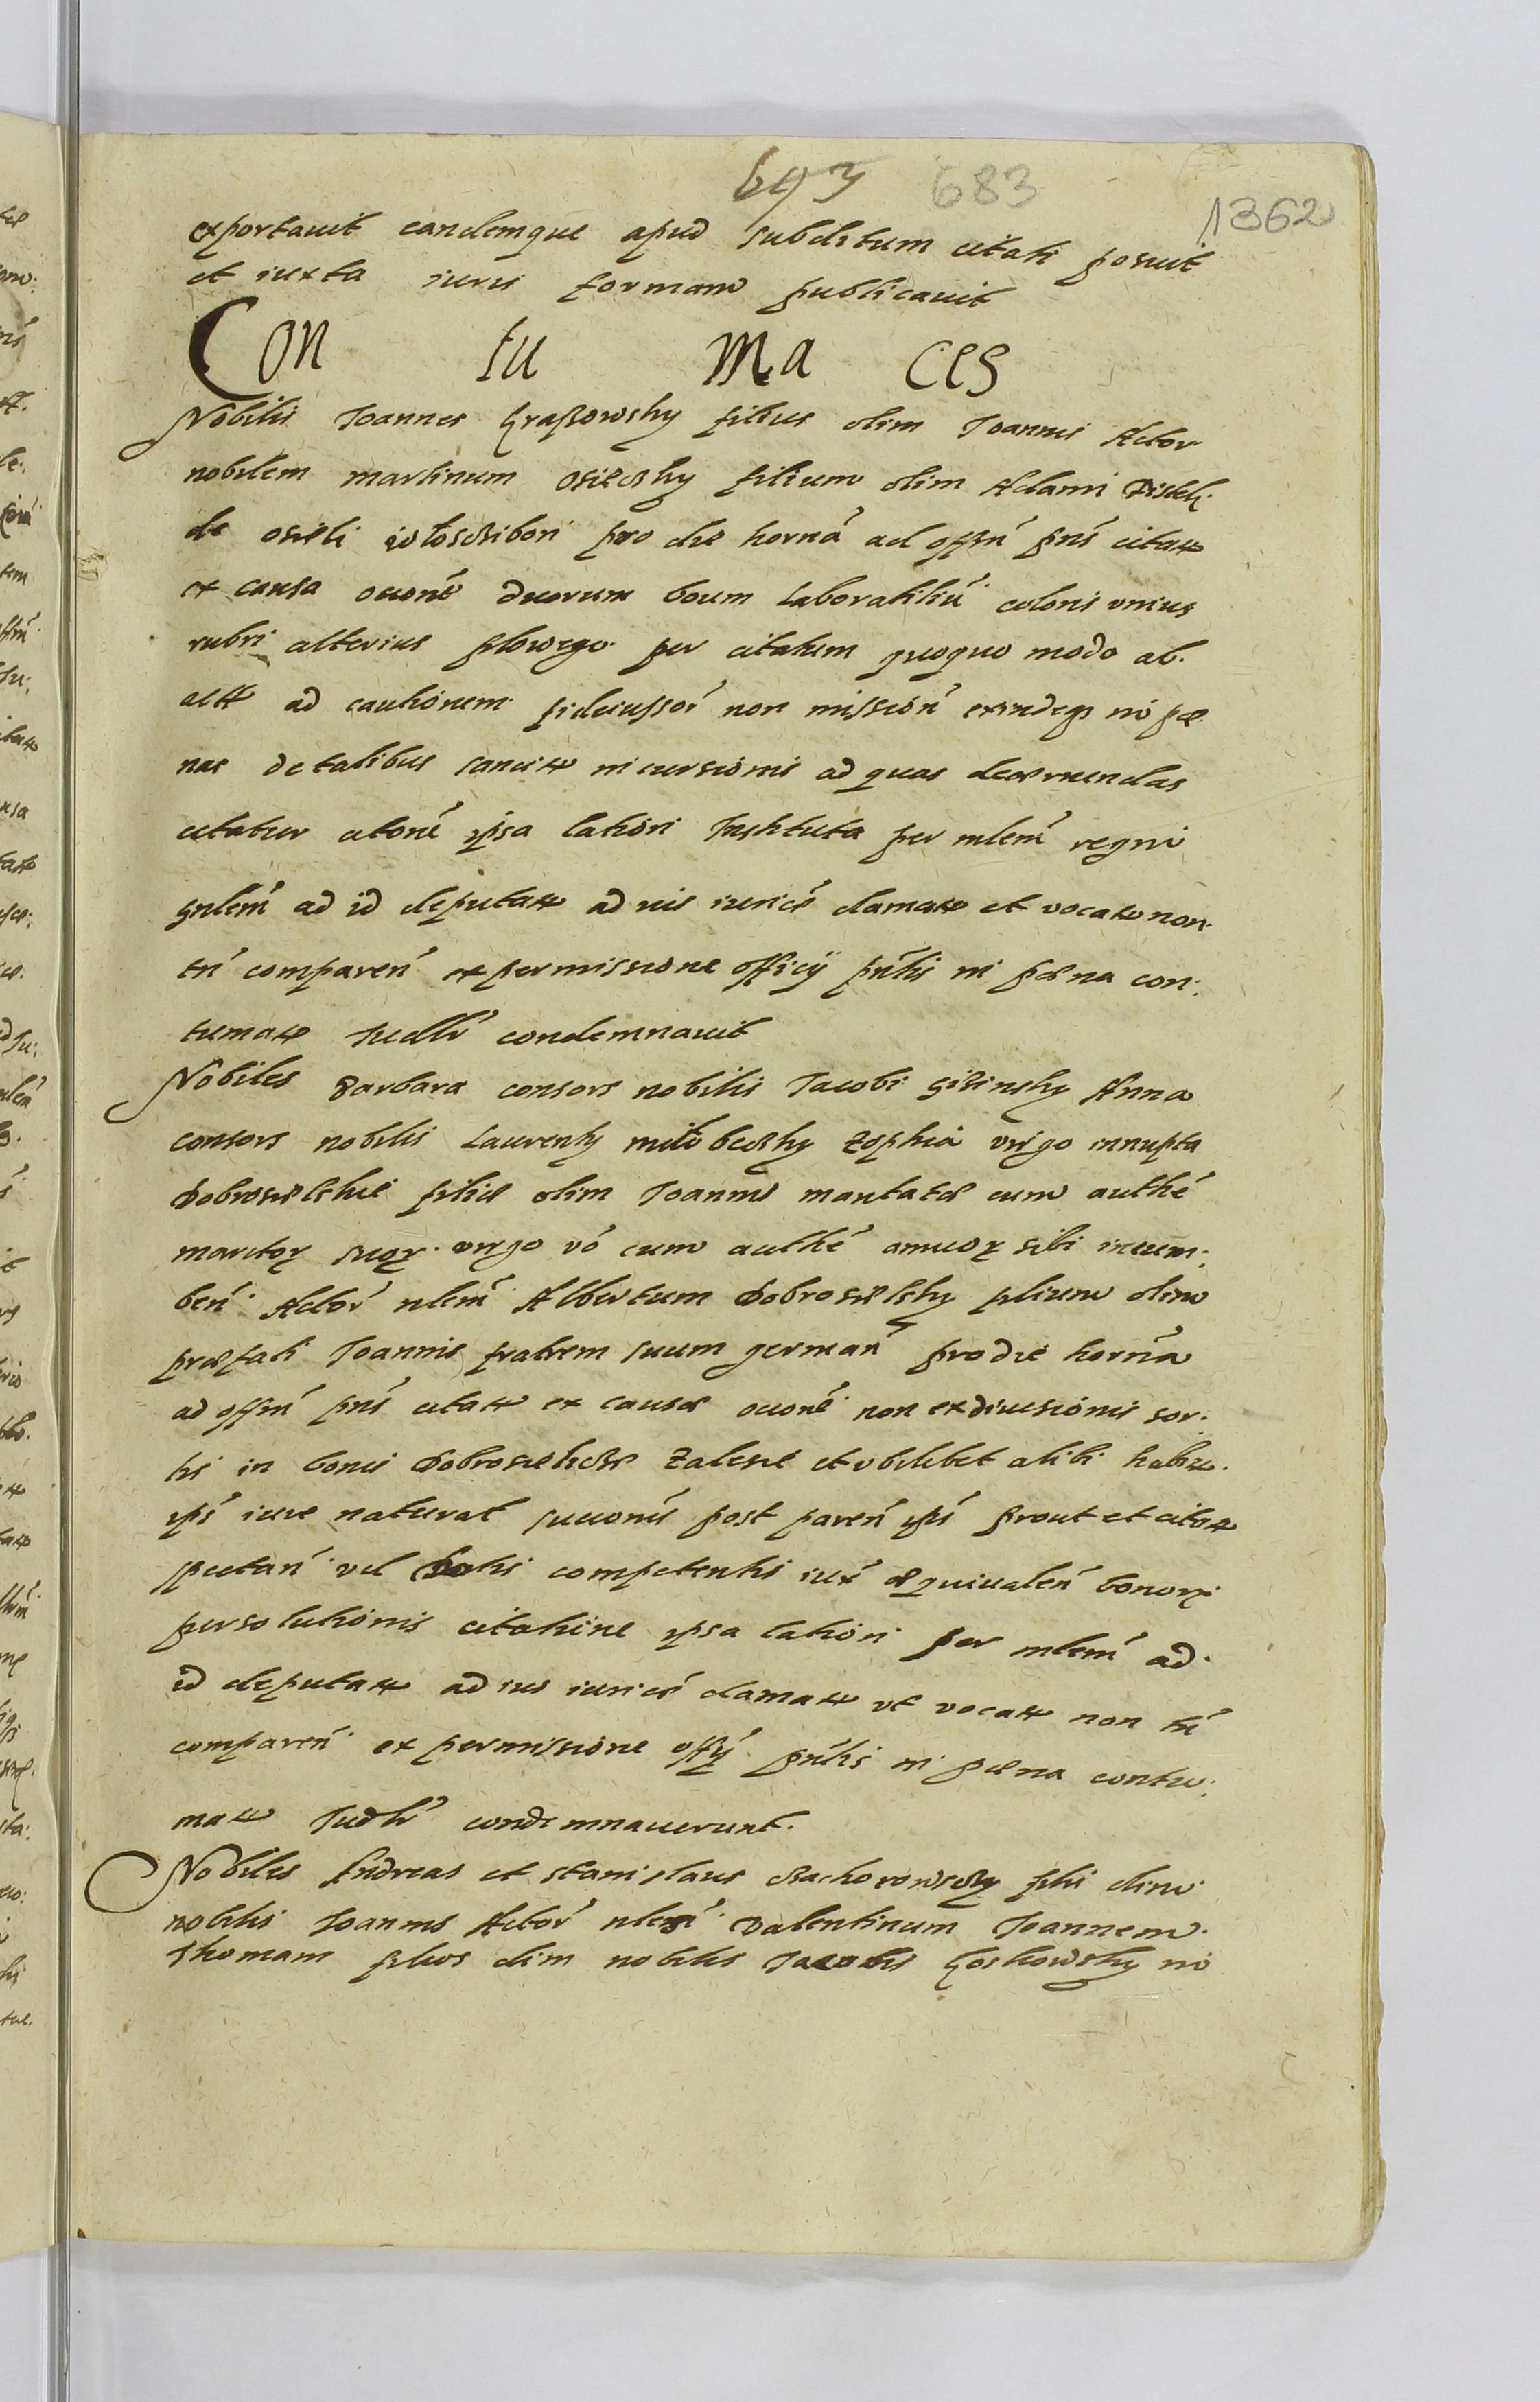 643 683 1362
exportauit eandemque apud subditum citati posuit
et iuxta iuris formam publicauit
Con tu ma ces
Nobilis Joannes filius olim Joannis Actor
nobilem martinum osiecky filium olim Adami
de pro die horná ad offń pńs citat
ex causa ouoné duorum boum Laboratiliú coloris vnius
rubri alterius plowego per citatum quoquo modo ab.
act ad cautionem fideiussoŕ non missioń exindeqs in pæ.
nas de talibus sancit incursionis ad quas decernendas
citatur citoné ipsa latiori Instituta per mleḿ regni
gnleḿ ad id deputat ad ius iurice clamat et vocat non.
tń compareń ex permissione officÿ pńtis in pæna con:
tumat Judlr condemnauit
Nobiles Barbara consors nobilis Jacobi Anna
consors nobilis Laurenty zophia virgo innupta
Dobrosielskie filiæ olim Joannis maritatæ cum authé
maritor suor. virgo vó cum authé amicor sibi incum:
beń Actoŕ nleḿ Albertum Dobrosielsky filium olim
præfati Joannis fratrem suum germań pro die horńa
ad offń pńs citat ex causa ouoné non exdiuisionis sor.
tis in bonis Zalesie et vbilibet alibi habit.
ips iure natural succonis post pareń ips prout et citat
spectań vel competentis iux æquiualeń bonor
persolutionis citatione ipsa latiori per mleḿ ad.
id deputat ad ius iurice clamat et vocat non tń
compareń ex permissione offÿ pńtis in pæna contu:
mat Judlr condemnauerunt.
Nobiles Andreas et stanislaus filii olim
nobilis Joannis Actoŕ nleś valentinum Joannem.
Thomam filios olim nobilis Jacobi in